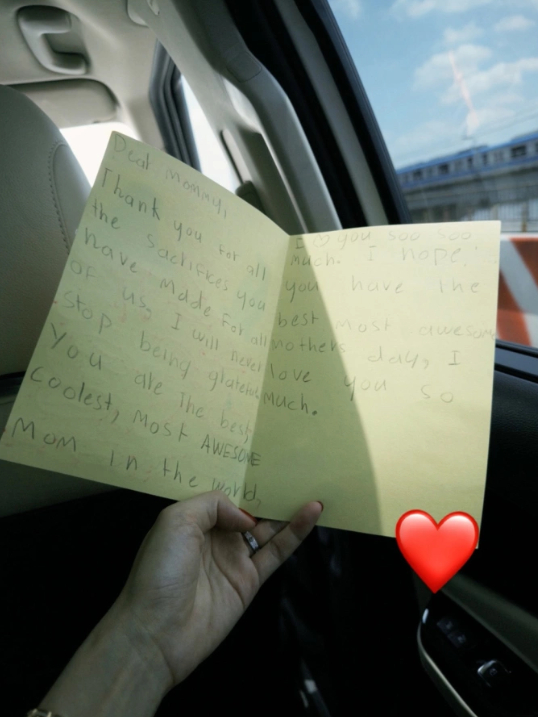 Dear Mommy,
Thank you for all
the sacrifices you
have made for all
of us, I will never
stop being glateful
You are The best,
coolest, most AWESOME
Mom in the world,
I you soo soo
much. I hope
you have the
best most awesom
mothers day, I
love you so
much.